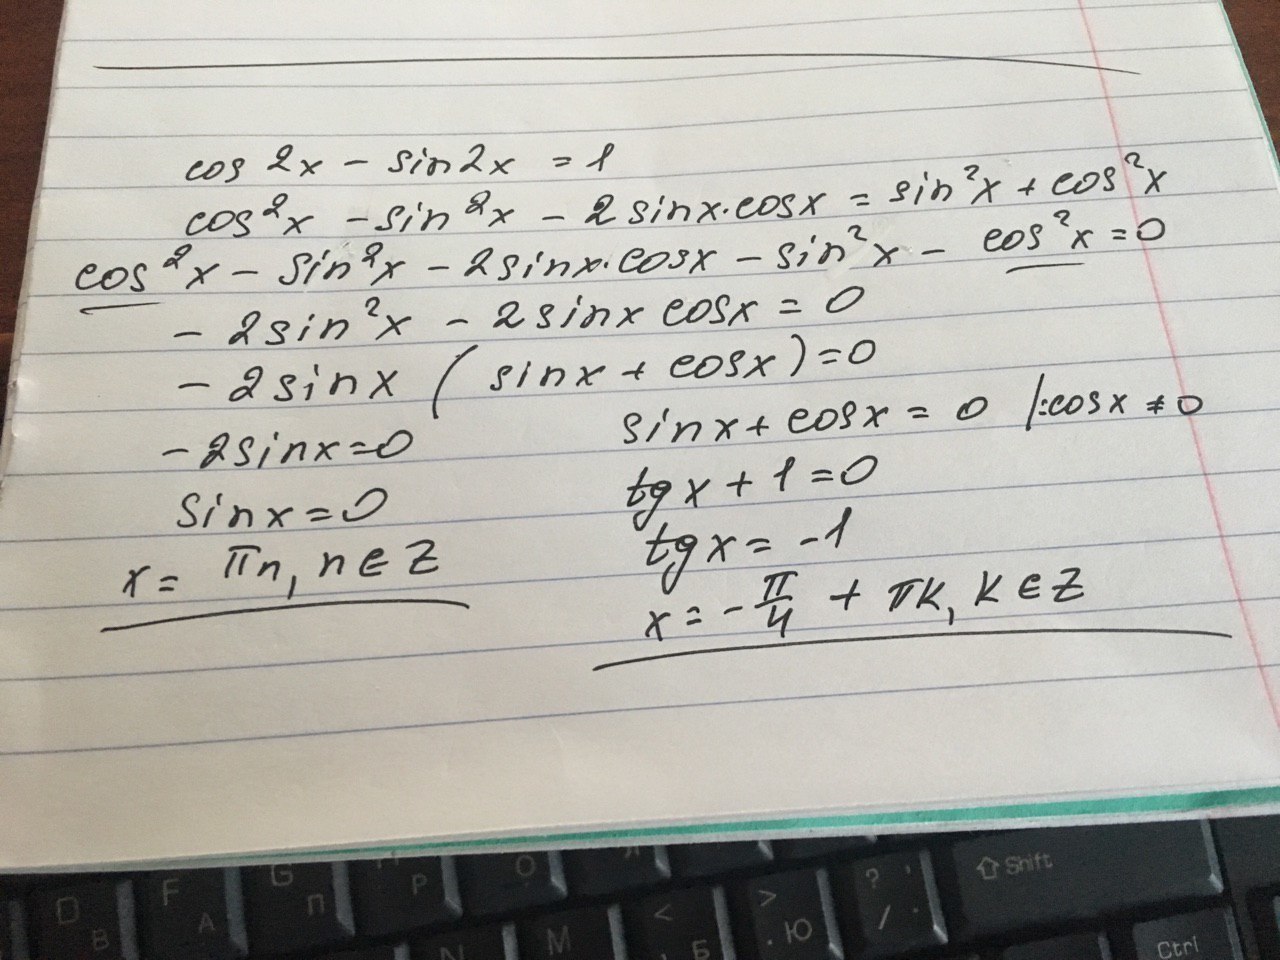 cos 2x - sin 2x = 1
cos²x - sin²x - 2 sinx·cosx = sin²x + cos²x
cos²x - sin²x - 2sinx·cosx - sin²x - cos²x = 0
- 2sin²x - 2sinx cosx = 0
- 2sinx (sinx + cosx) = 0
-2sinx = 0
sinx = 0
x = πn, n ∈ Z
sinx + cosx = 0 |:cosx ≠ 0
tgx + 1 = 0
tgx = -1
x = -π/4 + πk, k ∈ Z
O
F
G
P
O
Shift
В
А
П
M
<
Б
>
. Ю
? ,
/ .
Ctrl